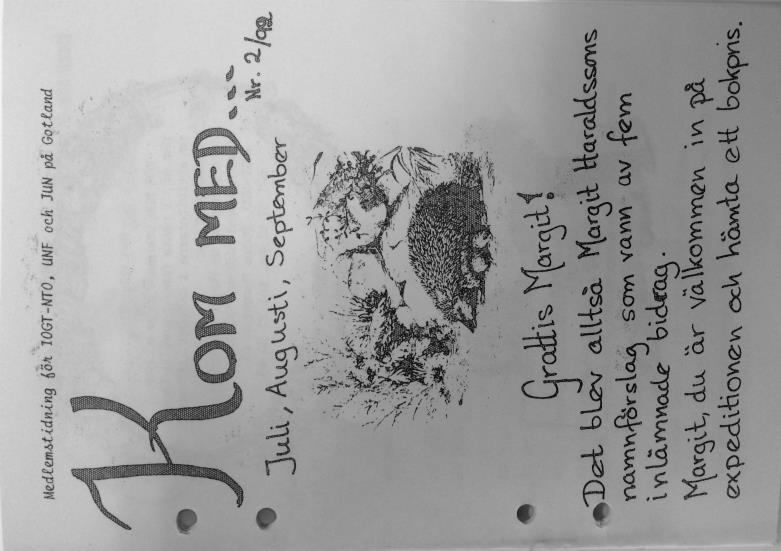 Medlemstidning för IOGT-NTO, UNF och JUN på Gotland
KOM MED...
Nr. 2/92
Juli, Augusti, September
Grattis Margit!
Det blev alltså Margit Haraldssons
namnförslag som vann av fem
inlämnade bidrag.
Margit, du är välkommen in på
expeditionen och hämta ett bokpris.